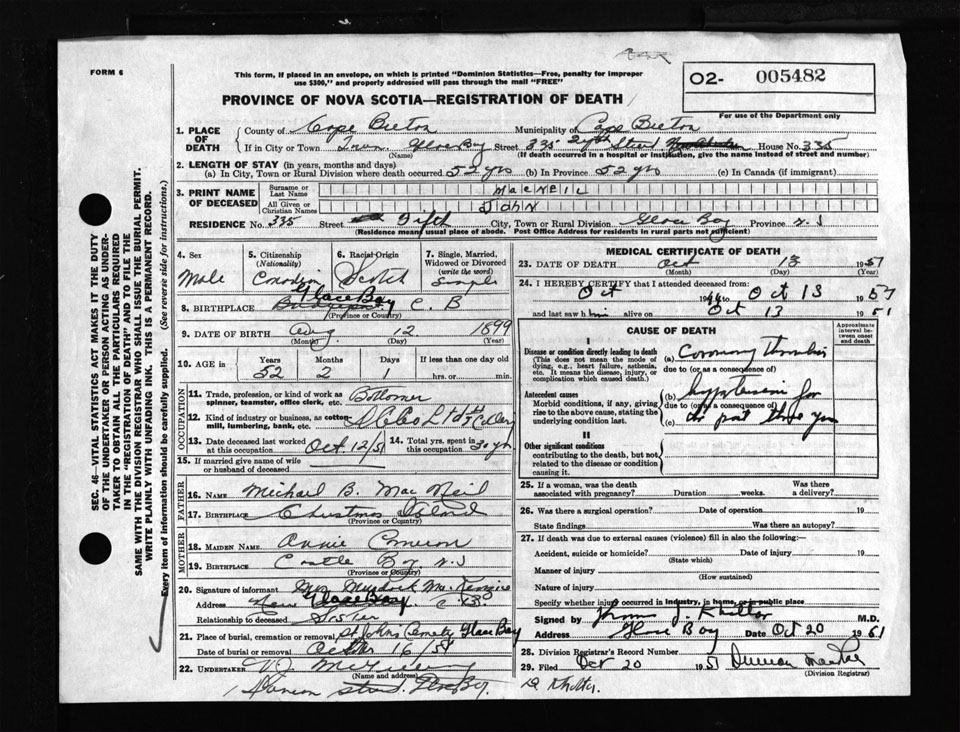 FORM 6
This form, if placed in an envelope, on which is printed "Dominion Statistics—Free, penalty for improper
use $300," and properly addressed will pass through the mail "FREE"
O2- 005482
PROVINCE OF NOVA SCOTIA—REGISTRATION OF DEATH
For use of the Department only
1. PLACE OF DEATH County of Cape Breton Municipality of Cape Breton
If in City or Town Town Glace Bay Street 335 Street House No. 335
(Name) (If death occurred in a hospital or institution, give the name instead of street and number)
2. LENGTH OF STAY (in years, months and days)
(a) In City, Town or Rural Division where death occurred 52 yrs (b) In Province 52 yrs (c) In Canada (if immigrant)
3. PRINT NAME OF DECEASED Surname or Last Name MacNeil
All Given or Christian Names John
RESIDENCE No. 335 Street Fifth City, Town or Rural Division Glace Bay Province N.S
(Residence means usual place of abode. Post Office Address for residents in rural parts not sufficient)
4. Sex 5. Citizenship (Nationality) 6. Racial Origin 7. Single, Married, Widowed or Divorced (write the word)
Male Canadian Scotch Single
8. BIRTHPLACE Glace Bay C. B
(Province or Country)
9. DATE OF BIRTH Aug 12 1899
(Month) (Day) (Year)
10. AGE in Years Months Days If less than one day old
52 2 1 hrs. or min.
OCCUPATION
11. Trade, profession, or kind of work as spinner, teamster, office clerk, etc. Bottomer
12. Kind of industry or business, as cotton-mill, lumbering, bank, etc.
13. Date deceased last worked at this occupation Oct. 12/51 14. Total yrs. spent in this occupation 30 yrs
15. If married give name of wife or husband of deceased
FATHER
16. NAME Michael B. MacNeil
17. BIRTHPLACE Christmas Island
(Province or Country)
MOTHER
18. MAIDEN NAME Annie Cameron
19. BIRTHPLACE Castle Bay N.S
(Province or Country)
20. Signature of informant Mrs. Murdock MacKenzie
Address New Glace Bay C. B.
Relationship to deceased Sister
21. Place of burial, cremation or removal St. Johns Cemetery Glace Bay
Date of burial or removal October 16/51
22. UNDERTAKER V.J.
(Name and address)
Glace Bay.
MEDICAL CERTIFICATE OF DEATH
23. DATE OF DEATH Oct 13 1951
(Month) (Day) (Year)
24. I HEREBY CERTIFY that I attended deceased from
Oct 19 to Oct 13 1951
and last saw him alive on Oct 13 1951
CAUSE OF DEATH
Approximate interval between onset and death
I
Disease or condition directly leading to death
(This does not mean the mode of dying, e.g., heart failure, asthenia, etc. It means the disease, injury, or complication which caused death.)
(a) Coronary Thrombosis
due to (or as a consequence of)
Antecedent causes
Morbid conditions, if any, giving rise to the above cause, stating the underlying condition last.
(b) hypertension for
due to (or as a consequence of)
(c) past three yrs
II
Other significant conditions
contributing to the death, but not related to the disease or condition causing it.
25. If a woman, was the death associated with pregnancy? Duration weeks. Was there a delivery?
26. Was there a surgical operation? Date of operation 19
State findings Was there an autopsy?
27. If death was due to external causes (violence) fill in also the following:—
Accident, suicide or homicide? Date of injury 19
(State which)
Manner of injury
(How sustained)
Nature of injury
Specify whether injury occurred in industry, in home, or in public place
Signed by M.D.
Address Glace Bay Date Oct 20 1951
28. Division Registrar's Record Number
29. Filed Oct 20 1951 Duncan
(Division Registrar)
SEC. 46—VITAL STATISTICS ACT MAKES IT THE DUTY
OF THE UNDERTAKER OR PERSON ACTING AS UNDER-
TAKER TO OBTAIN ALL THE PARTICULARS REQUIRED
IN THE "REGISTRATION OF DEATH" AND TO FILE THE
SAME WITH THE DIVISION REGISTRAR WHO SHALL ISSUE THE BURIAL PERMIT.
WRITE PLAINLY WITH UNFADING INK. THIS IS A PERMANENT RECORD.
Every item of information should be carefully supplied. (See reverse side for instructions.)